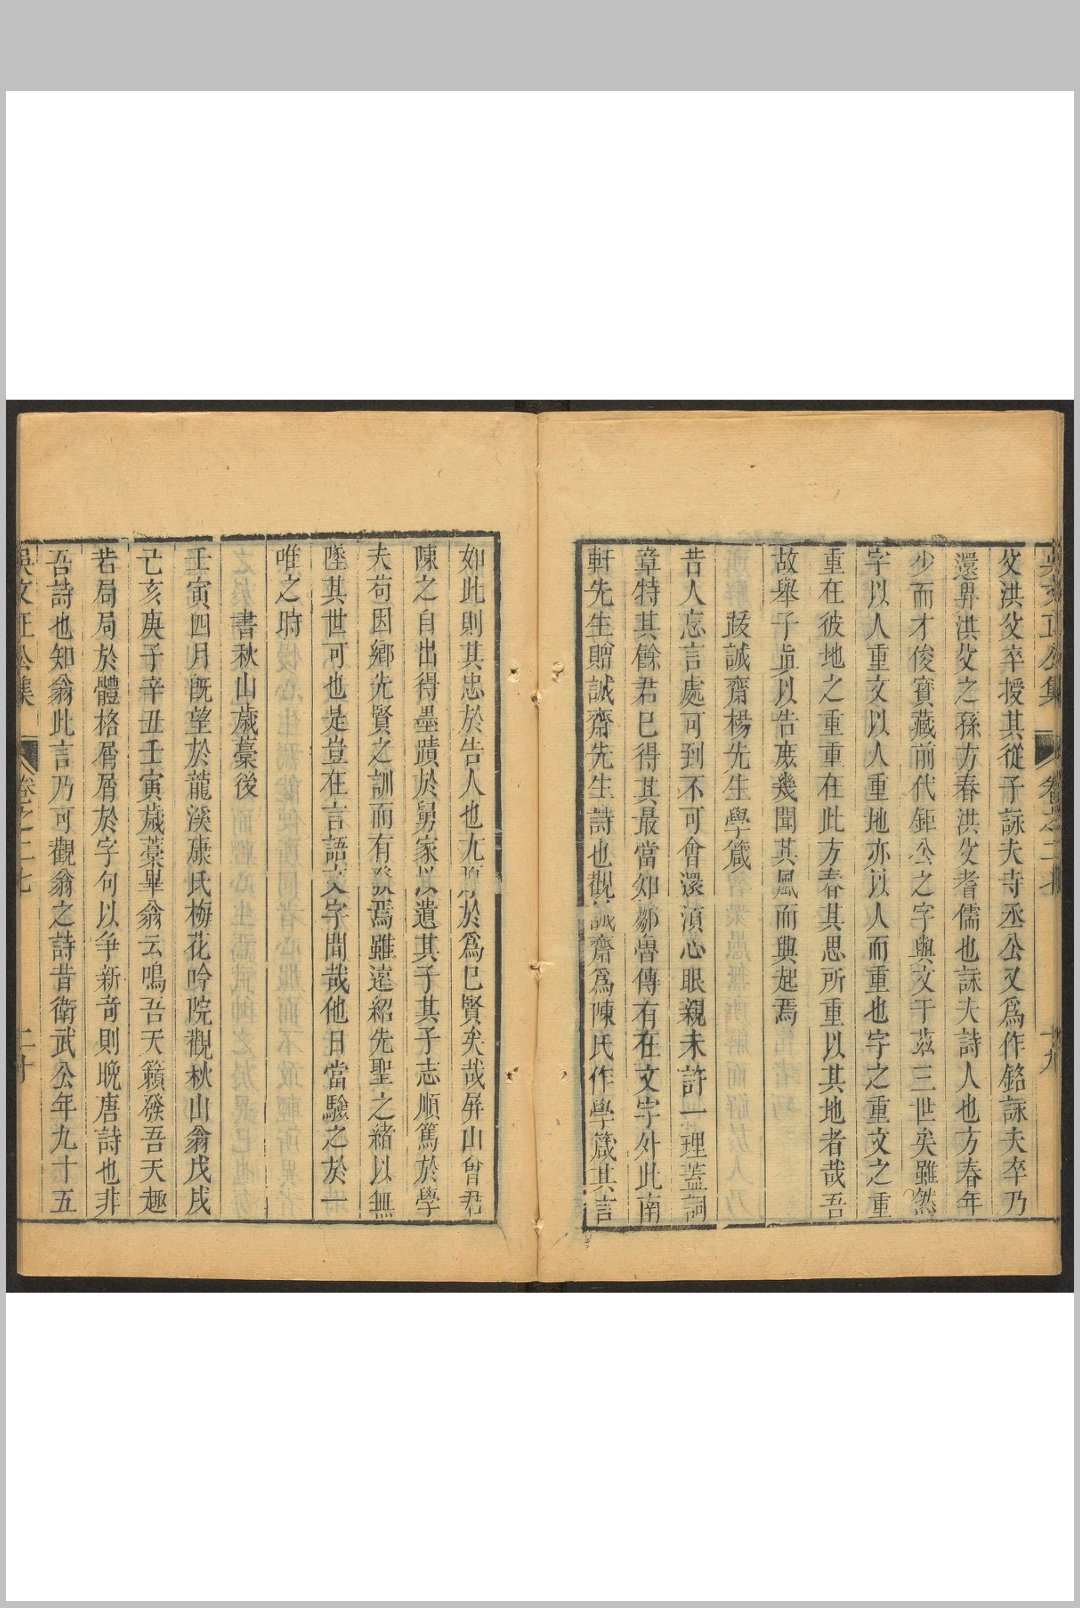 吳文正公集 卷之二十七 十九
父洪父卒授其從子詠夫寺丞公又爲作銘詠夫卒乃
還畀洪父之孫方春洪父耆儒也詠夫詩人也方春年
少而才俊寳藏前代鉅公之字與文于茲三世矣雖然
字以人重文以人重地亦以人而重也字之重文之重
重在彼地之重重在此方春其思所重以其地者哉吾
故舉子眞以告庶幾聞其風而興起焉
跋誠齋楊先生學箴
昔人忘言處可到不可會還湏心眼親未許一理蓋詞
章特其餘君已得其最當知鄒魯傳有在文字外此南
軒先生贈誠齋先生詩也觀誠齋爲陳氏作學箴其言
如此則其忠於告人也尤厚於爲已賢矣哉屏山曾君
陳之自出得墨蹟於舅家以遺其子其子志順篤於學
夫苟因鄉先賢之訓而有發焉雖遠紹先聖之緒以無
墜其世可也是豈在言語文字間哉他日當驗之於一
唯之時
書秋山歲藁後
壬寅四月旣望於龍溪康氏梅花吟院觀秋山翁戊戌
己亥庚子辛丑壬寅歲藁畢翁云鳴吾天籟發吾天趣
若局局於體格屑屑於字句以争新竒則晚唐詩也非
吾詩也知翁此言乃可觀翁之詩昔衛武公年九十五
吳文正公集 卷之二七 二十